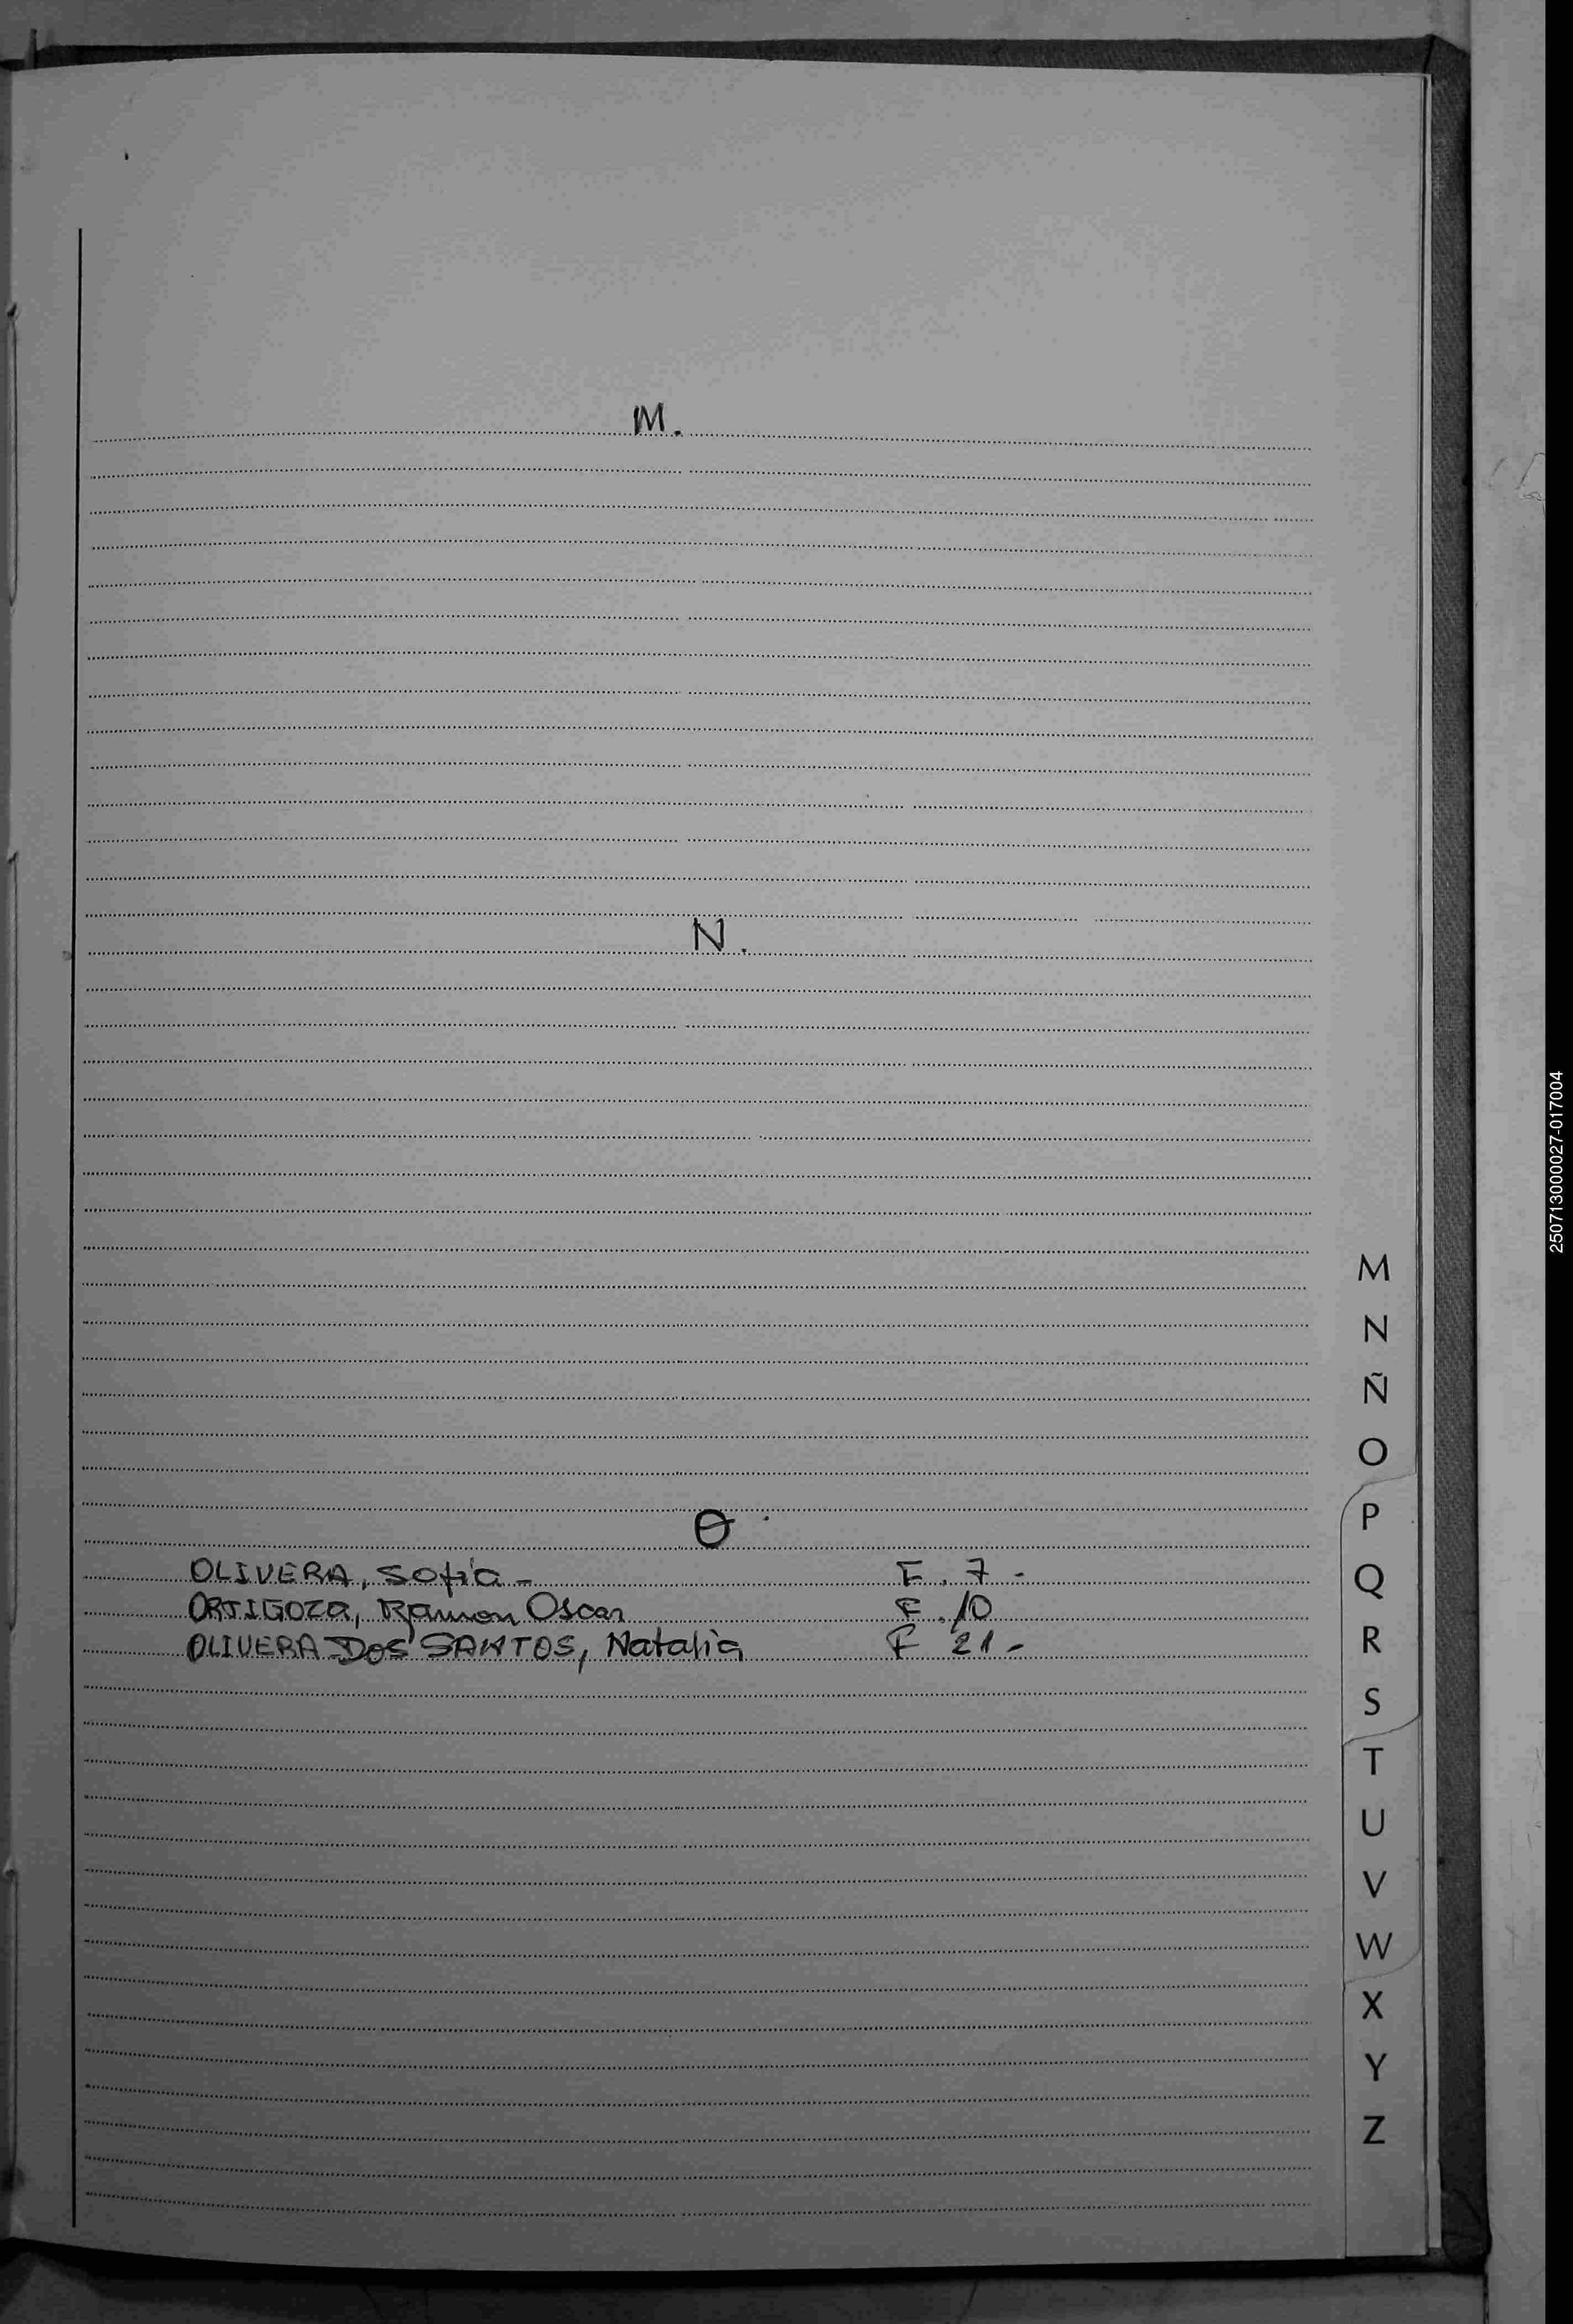 M.
N.
O.
OLIVERA, Sofía -
F. 7 -
ORTIGOZA, Ramon Oscar
F. 10
OLIVERA DOS SANTOS, Natalia
F 21 -
M
N
Ñ
O
P
Q
R
S
T
U
V
W
X
Y
Z
250713000027-017004